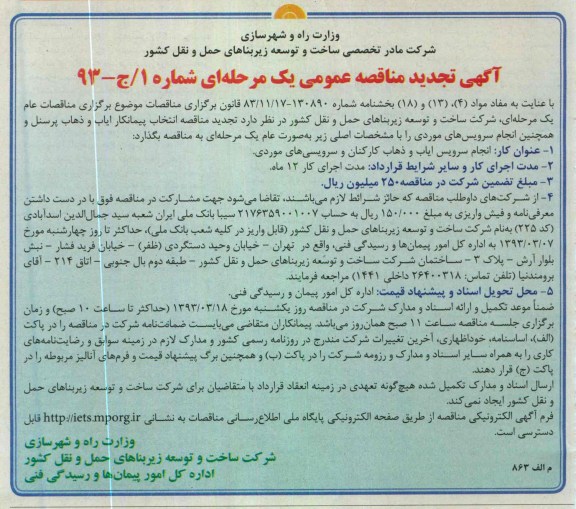 وزارت راه و شهرسازی
شرکت مادر تخصصی ساخت و توسعه زیربناهای حمل و نقل کشور
آگهی تجدید مناقصه عمومی یک مرحله‌ای شماره ۱/ج-۹۳
با عنایت به مفاد مواد (۴)، (۱۳) و (۱۸) بخشنامه شماره ۱۳۰۸۹۰-۸۳/۱۱/۱۷ قانون برگزاری مناقصات موضوع برگزاری مناقصات عام
یک مرحله‌ای، شرکت ساخت و توسعه زیربناهای حمل و نقل کشور در نظر دارد تجدید مناقصه انتخاب پیمانکار ایاب و ذهاب پرسنل و
همچنین انجام سرویس‌های موردی را با مشخصات اصلی زیر به‌صورت عام یک مرحله‌ای به مناقصه بگذارد:
۱- عنوان کار: انجام سرویس ایاب و ذهاب کارکنان و سرویسی‌های موردی.
۲- مدت اجرای کار و سایر شرایط قرارداد: مدت اجرای کار ۱۲ ماه.
۳- مبلغ تضمین شرکت در مناقصه ۲۵۰ میلیون ریال.
۴- از شرکت‌های داوطلب مناقصه که حائز شرائط لازم می‌باشند، تقاضا می‌شود جهت مشارکت در مناقصه فوق با در دست داشتن
معرفی‌نامه و فیش واریزی به مبلغ ۱۵۰/۰۰۰ ریال به حساب ۲۱۷۶۳۵۹۰۰۱۰۰۷ سیبا بانک ملی ایران شعبه سید جمال‌الدین اسدآبادی
(کد ۲۲۵) به‌نام شرکت ساخت و توسعه زیربناهای حمل و نقل کشور (قابل واریز در کلیه شعب بانک ملی)، حداکثر تا روز چهارشنبه مورخ
۱۳۹۳/۰۲/۰۷ به اداره کل امور پیمان‌ها و رسیدگی فنی، واقع در تهران - خیابان وحید دستگردی (ظفر) - خیابان فرید فشار - نبش
بلوار آرش - پلاک ۳ - ساختمان شرکت ساخت و توسعه زیربناهای حمل و نقل کشور - طبقه دوم بال جنوبی - اتاق ۲۱۴ - آقای
برومندنیا (تلفن تماس: ۲۶۴۰۰۳۱۸ داخلی ۱۴۴۱) مراجعه فرمایند.
۵- محل تحویل اسناد و پیشنهاد قیمت: اداره کل امور پیمان و رسیدگی فنی.
ضمناً موعد تکمیل و ارائه اسناد و مدارک شرکت در مناقصه روز یکشنبه مورخ ۱۳۹۳/۰۳/۱۸ (حداکثر تا ساعت ۱۰ صبح) و زمان
برگزاری جلسه مناقصه ساعت ۱۱ صبح همان‌روز می‌باشد. پیمانکاران متقاضی می‌بایست ضمانت‌نامه شرکت در مناقصه را در پاکت
(الف)، اساسنامه، خوداظهاری، آخرین تغییرات شرکت مندرج در روزنامه رسمی کشور و مدارک لازم در زمینه سوابق و رضایت‌نامه‌های
کاری را به همراه سایر اسناد و مدارک و رزومه شرکت را در پاکت (ب) و همچنین برگ پیشنهاد قیمت و فرم‌های آنالیز مربوطه را در
پاکت (ج) قرار دهند.
ارسال اسناد و مدارک تکمیل شده هیچ‌گونه تعهدی در زمینه انعقاد قرارداد با متقاضیان برای شرکت ساخت و توسعه زیربناهای حمل
و نقل کشور ایجاد نمی‌کند.
فرم آگهی الکترونیکی مناقصه از طریق صفحه الکترونیکی پایگاه ملی اطلاع‌رسانی مناقصات به نشانی http://iets.mporg.ir قابل
دسترسی است.
وزارت راه و شهرسازی
شرکت ساخت و توسعه زیربناهای حمل و نقل کشور
اداره کل امور پیمان‌ها و رسیدگی فنی
م الف ۸۶۳